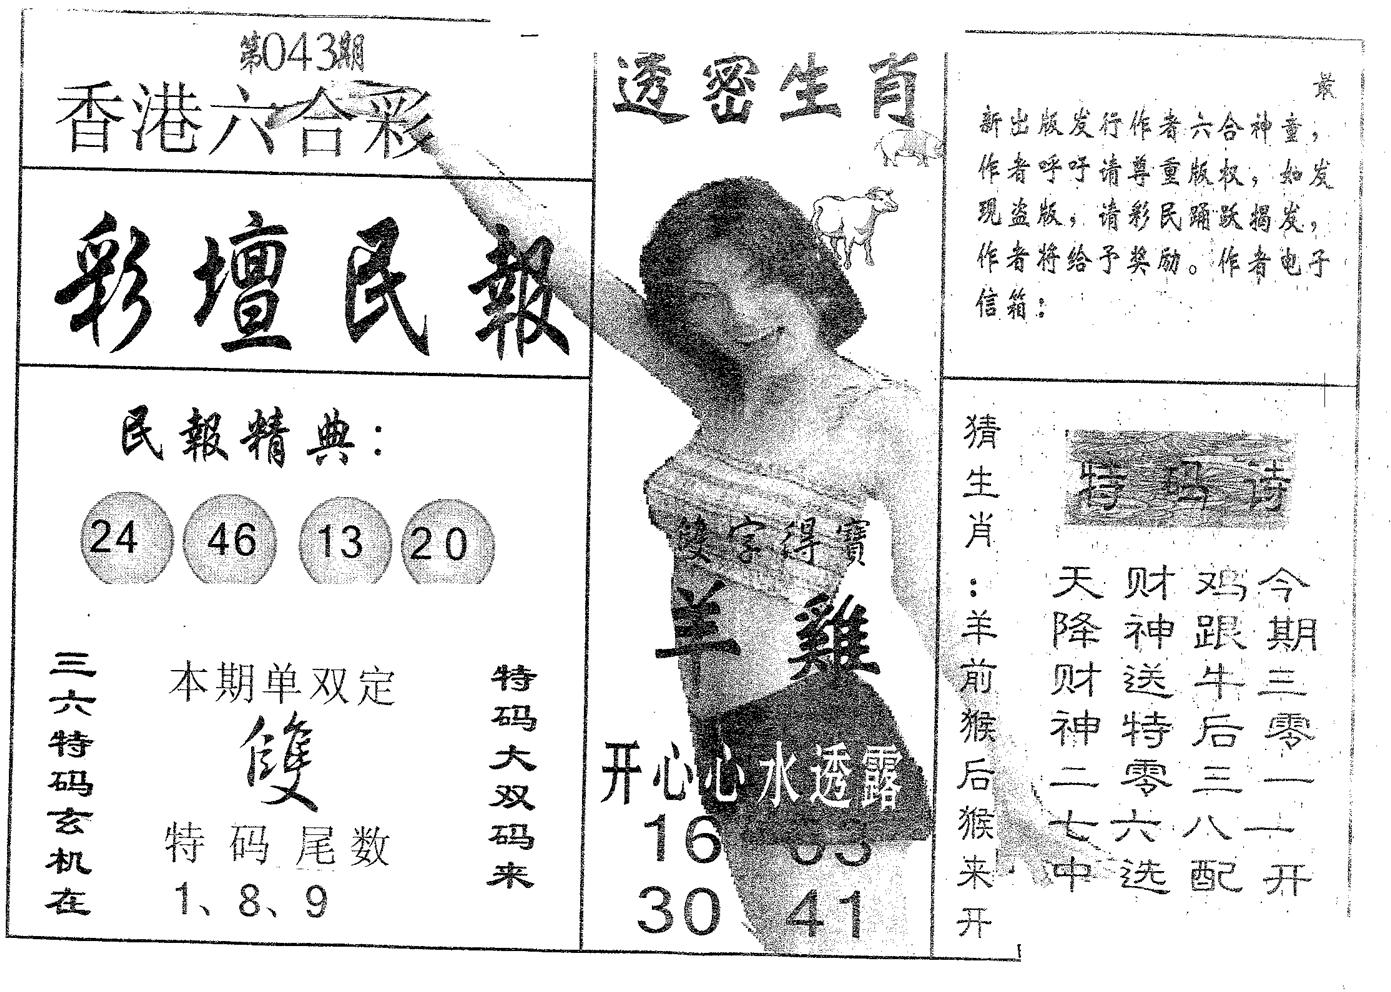 第043期
香港六合彩
彩壇民報
民報精典：
24 46 13 20
三六特码玄机在
本期单双定
雙
特码尾数
1、8、9
特码大双码来
透密生肖
雙字得寶
羊 雞
开心心水透露
16 03
30 41
最
新出版发行作者六合神童，
作者呼吁请尊重版权，如发
现盗版，请彩民踊跃揭发，
作者将给予奖励。作者电子
信箱：
猜生肖：羊前猴后猴来开
特码诗
今期三零一一开
鸡跟牛后三八配
财神送特零六选
天降财神二七中